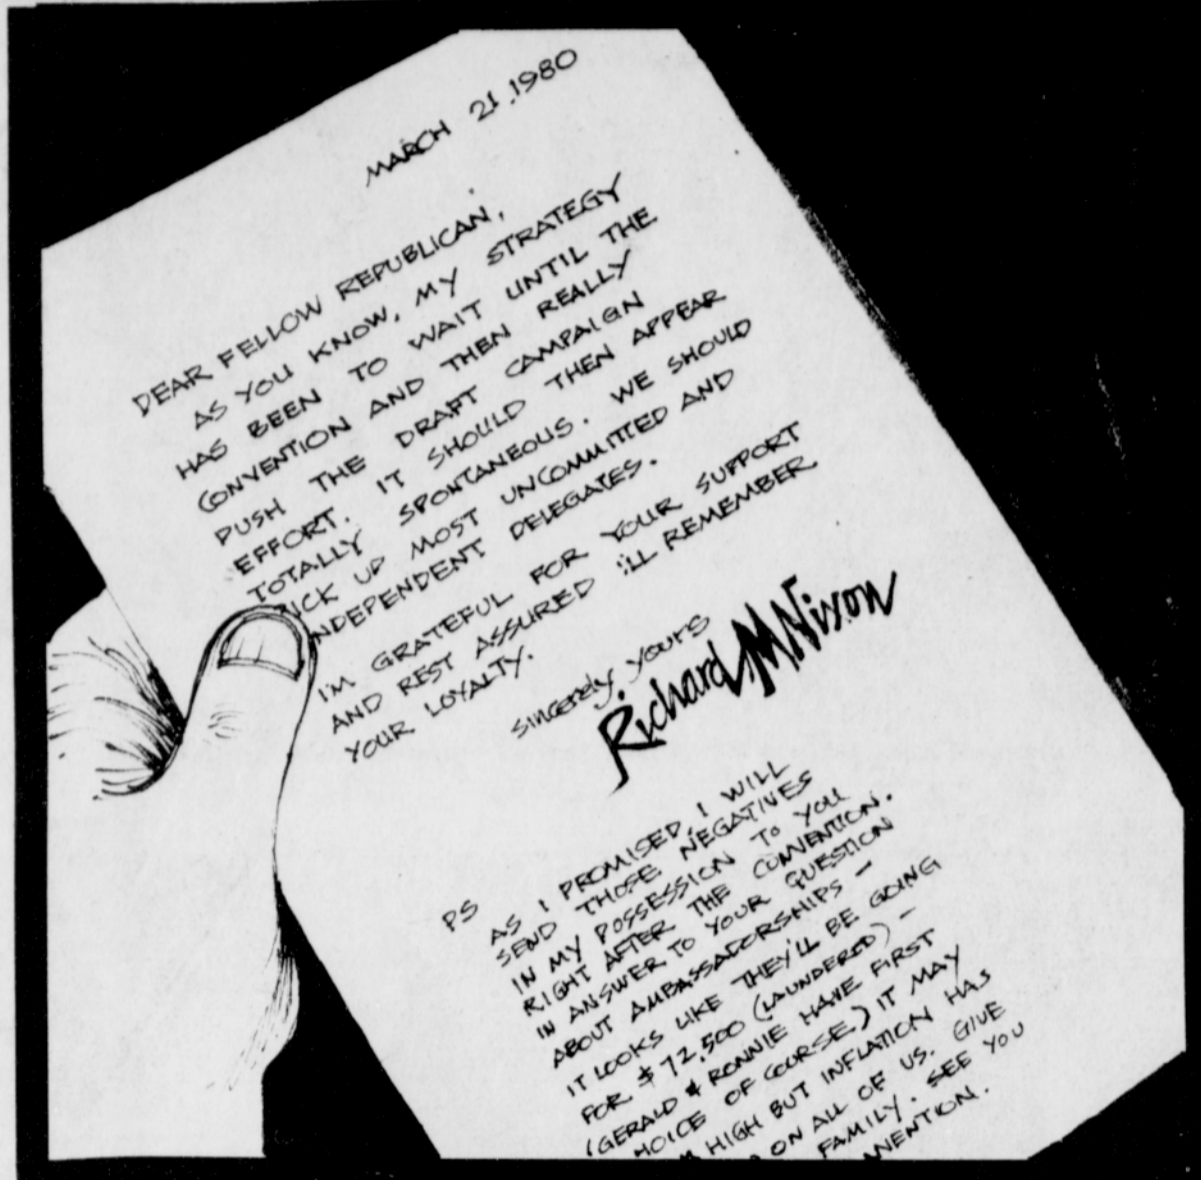 MARCH 21, 1980
DEAR FELLOW REPUBLICAN,
AS YOU KNOW, MY STRATEGY
HAS BEEN TO WAIT UNTIL THE
CONVENTION AND THEN REALLY
PUSH THE DRAFT CAMPAIGN
EFFORT. IT SHOULD THEN APPEAR
TOTALLY SPONTANEOUS. WE SHOULD
ICK UP MOST UNCOMMITTED AND
NDEPENDENT DELEGATES.
I'M GRATEFUL FOR YOUR SUPPORT
AND REST ASSURED I'LL REMEMBER
YOUR LOYALTY.
Sincerely yours
Richard M Nixon
PS
AS I PROMISED, I WILL
SEND THOSE NEGATIVES
IN MY POSSESSION TO YOU
RIGHT AFTER THE CONVENTION.
IN ANSWER TO YOUR QUESTION
ABOUT AMBASSADORSHIPS -
IT LOOKS LIKE THEY'LL BE GOING
FOR $72,500 (LAUNDERED) -
(GERALD & RONNIE HAVE FIRST
HOICE OF COURSE.) IT MAY
HIGH BUT INFLATION HAS
ON ALL OF US. GIVE
FAMILY. SEE YOU
NVENTION.